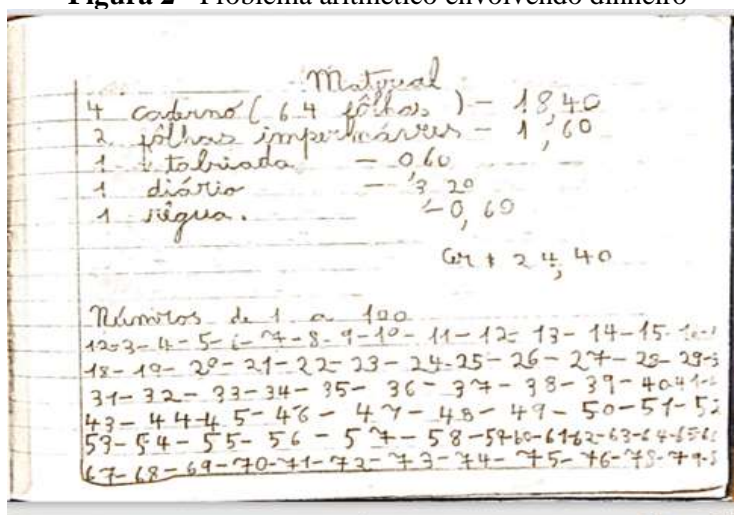 Figura 2 - Problema aritmético envolvendo dinheiro
Material
4 caderno ( 64 fôlhas ) - 18,40
2 fôlhas - 1,60
1 tabriada - 0,60
1 diário - 3,20
1 régua. - 0,60
Cr $ 24,40
Números de 1 a 100
12-3-4-5-6-7-8-9-10-11-12-13-14-15-16-
18-19-20-21-22-23-24-25-26-27-28-29-3
31-32-33-34-35-36-37-38-39-40-41-
43-44-45-46-47-48-49-50-51-52
53-54-55-56-57-58-59-60-61-62-63-64-65-6
67-68-69-70-71-72-73-74-75-76-78-79-